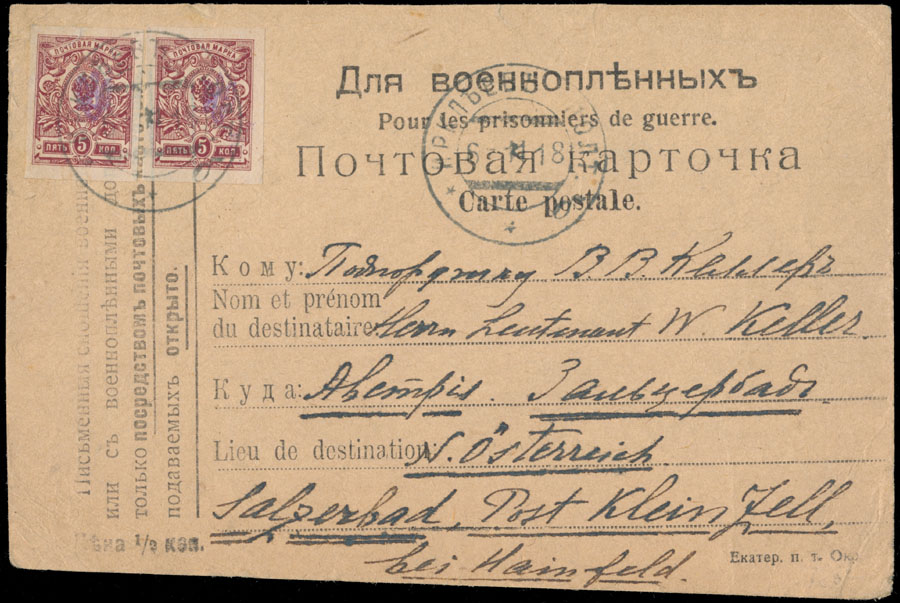 ПОЧТОВАЯ МАРКА ПОЧТОВАЯ МАРКА
5 5
ПЯТЬ КОП. ПЯТЬ КОП.
Для военноплѣнныхъ
Pour les prisonniers de guerre.
Почтовая карточка
Carte postale.
18
Кому: В. В. Келлеръ
Nom et prénom
du destinataire: Herrn Leutenant W. Keller
Куда: Австрія. Зальцербадъ
Lieu de destination: Österreich
Salzerbad, Post Klein Zell,
bei Hainfeld.
Письменныя сношенія
или съ военноплѣнными
только посредствомъ почтовыхъ
подаваемыхъ открыто.
Цѣна 1/2 коп.
Екатер. п. т. Ок